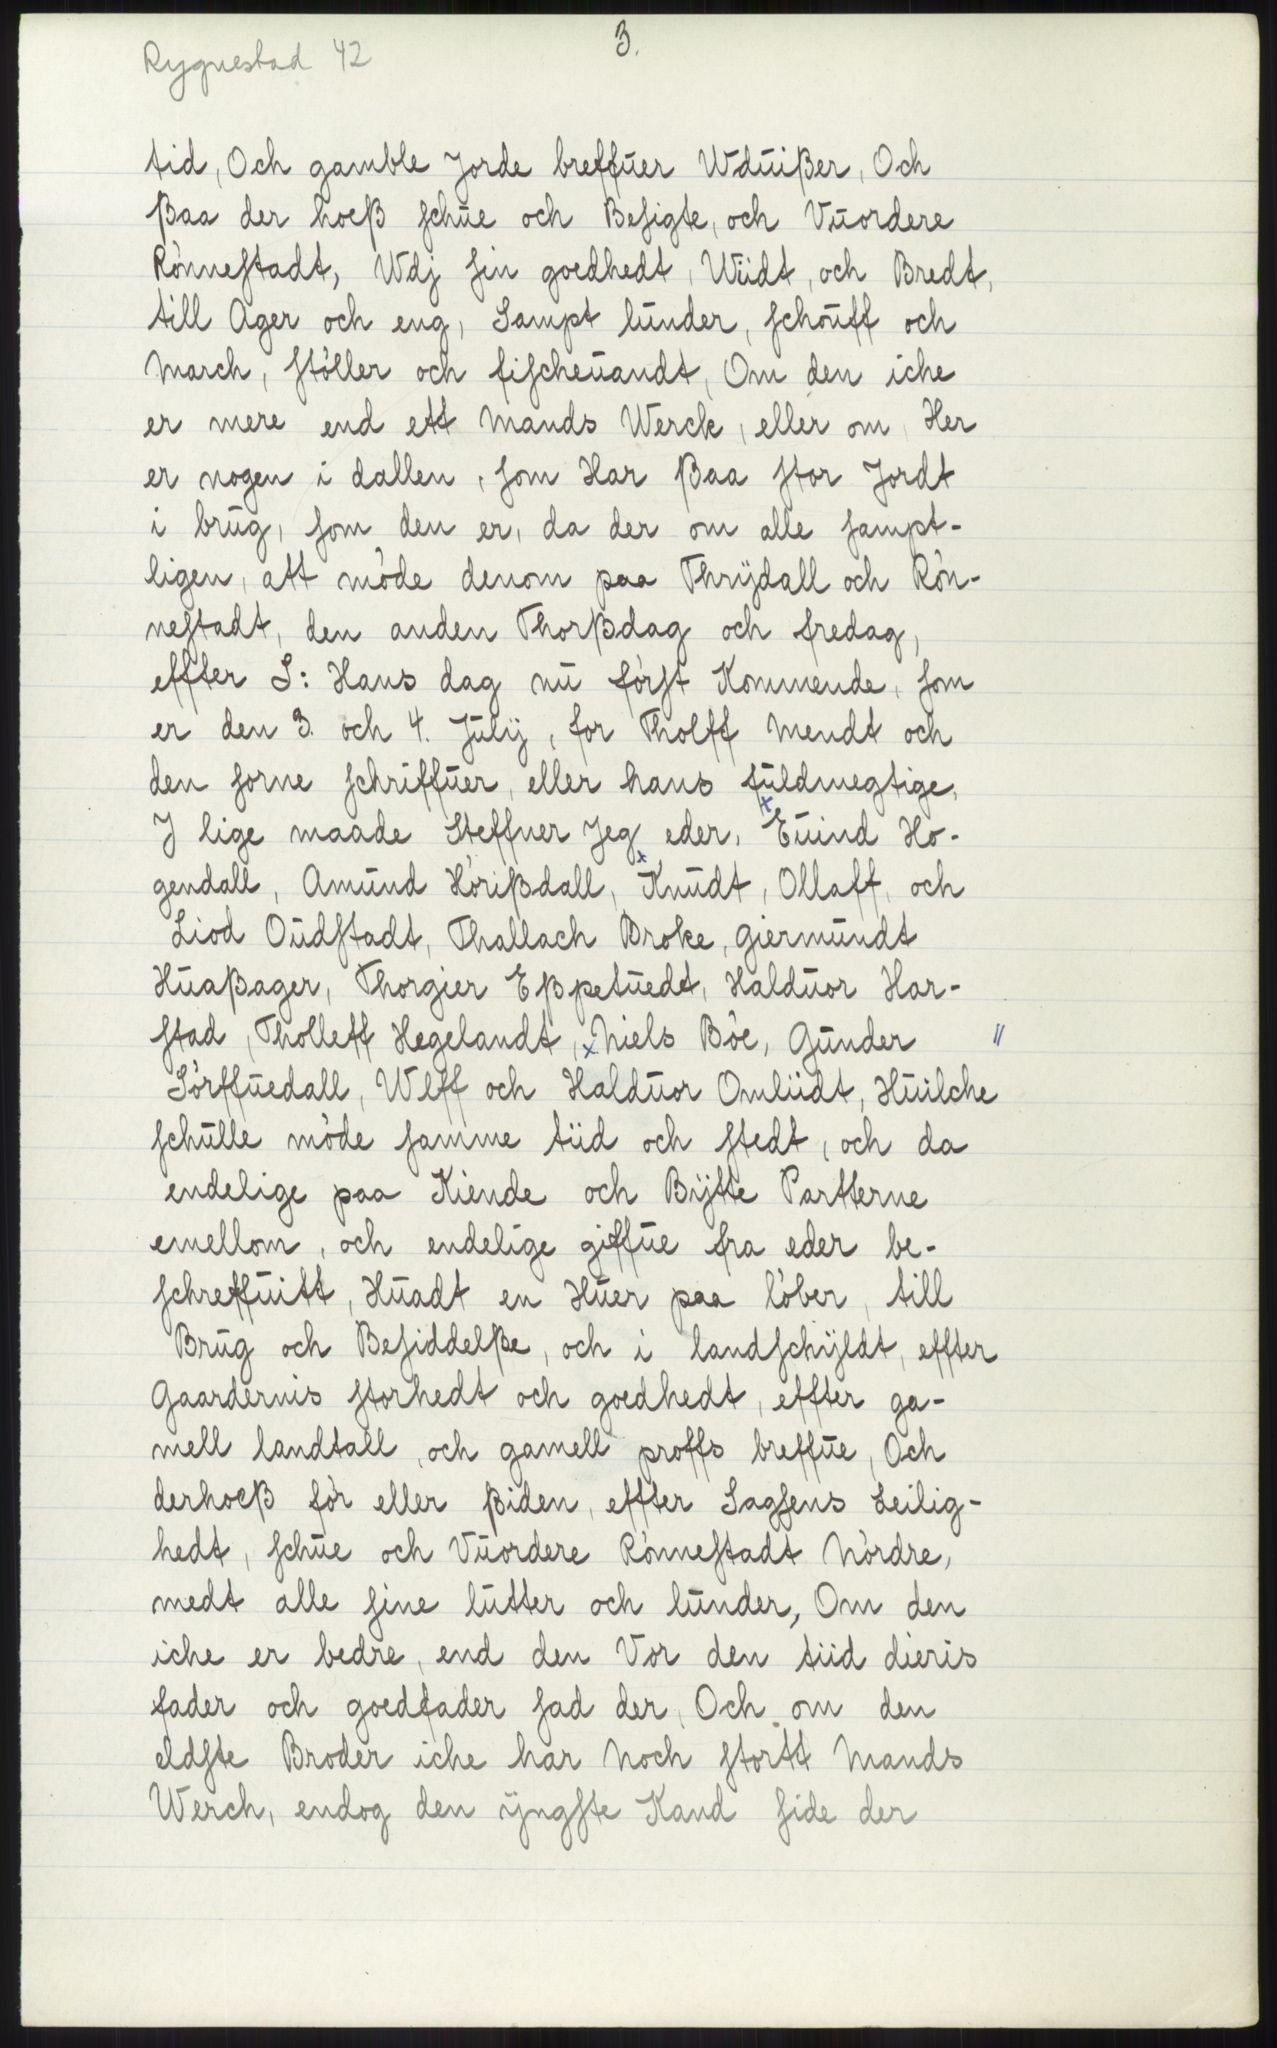 Rygnestad 42
3.
tid, Och gamble Jorde breffuer Wduißer, Och
ßaa der hoeß ſchue och Beſigte, och Vuordere
Rönneſtadt, Wdj ſin goedhedt, Wiidt, och Bredt,
till Ager och eng, Sampt lunder, ſchouff och
March, ſtöller och fiſcheuandt, Om den iche
er mere end ett Mands Werck, eller om Her
er nogen i dallen, ſom Har ßaa ſtor Jordt
i brug, ſom den er, da der om alle ſampt-
ligen, att möde denom paa Thrÿdall och Rön-
neſtadt, den anden Thorßdag och fredag,
effter S: Hans dag nu förſt Kommende, ſom
er den 3. och 4. Julÿ, for Tholff Mendt och
den ſorne ſchriffuer, eller hans fuldmegtige,
J lige maade Steffner Jeg eder, Euind Ho-
gendall, Amund Hörißdall, Knudt, Ollaff, och
Liod Oudſtadt, Thallach Broke, Giermundt
Huaßager, Thorgier Eßpetuedt, Halduor Har-
ſtad, Tholleff Hegelandt, Niels Böe, Gunder "
Sörffuedall, Wlff och Halduor Omliidt, Huilche
ſchulle möde ſamme tiid och ſtedt, och da
endelige paa Kiende och Bÿtte Partterne
emellom, och endelige giffue fra eder be-
ſchreffuitt, Huadt en Huer paa löber, till
Brug och Beſiddelße, och i landſchÿldt, effter
Gaardernis ſtorhedt och goedhedt, effter ga-
mell landtall, och gamell proffs breffue, Och
derhoeß för eller ßiden, effter Sagſens Leilig-
hedt, ſchue och Vuordere Rönneſtadt Nördre,
medt alle ſine lutter och lunder, Om den
iche er bedre, end den Vor den tiid dieris
fader och goedfader ſad der, Och om den
eldſte Broder iche har Noch ſtortt Mands
Werch, endog den ÿngſte Kand ſide der